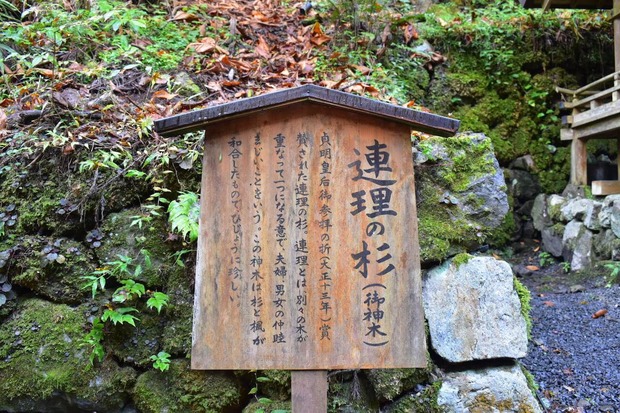 連理の杉(御神木)
貞明皇后御参拝の折(大正十三年)賞
賛された連理の杉。連理とは、別々の木が
重なって一つになる意で、夫婦、男女の仲睦
まじいことをいう。この神木は杉と楓が
和合したもので、ひじょうに珍しい。